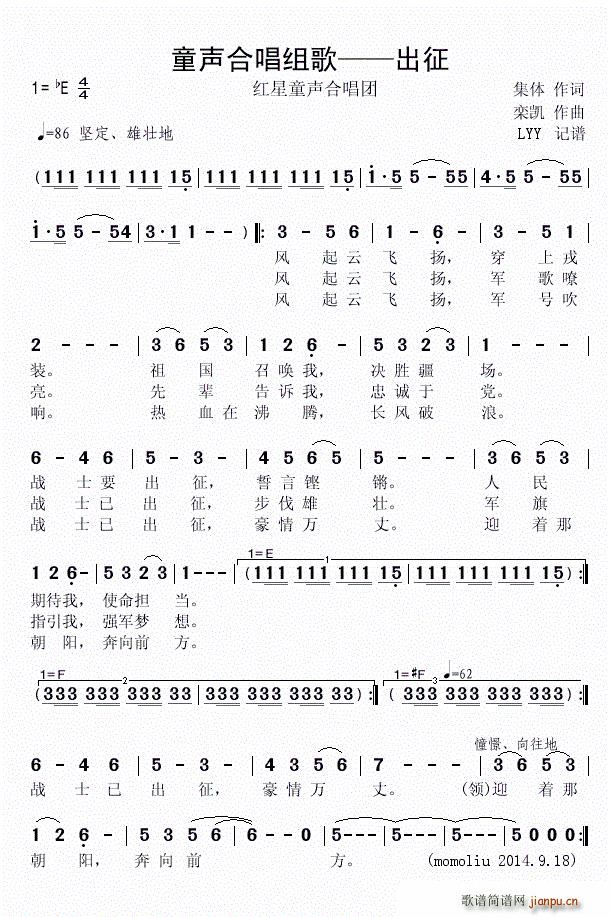 童声合唱组歌——出征
1=♭E 4/4
红星童声合唱团
集体 作词
栾凯 作曲
♩=86 坚定、雄壮地
LYY 记谱
(111 111 111 115|111 111 111 115|1·5 5-55|4·5 5-55|
1·5 5-54|3·1 1--)‖:3-56|1-6-|3-51|
风 起云 飞 扬， 穿 上戎
风 起云 飞 扬， 军 歌嘹
风 起云 飞 扬， 军 号吹
2---|3653|126-|5323|1---|
装。 祖国 召唤我， 决胜疆 场。
亮。 先辈 告诉我， 忠诚于 党。
响。 热血在 沸腾， 长风破 浪。
6-46|5-3-|4565|5---|3653|
战 士要 出 征， 誓言铿 锵。 人民
战 士已 出 征， 步伐雄 壮。 军旗
战 士已 出 征， 豪情万 丈。 迎着那
1=E 1
126-|5323|1---|(111 111 111 115|111 111 111 115):‖
期待我， 使命担 当。
指引我， 强军梦 想。
朝 阳， 奔向前 方。
1=F 2 1=#F 3 ♩=62
(333 333 333 333|333 333 333 333):‖(333 333 333 333):‖
憧憬、向往地
6-46|5-3-|4356|7---|3653|
战 士已 出 征， 豪情万 丈。 (领)迎着那
126-|5323|6--0|5---|5---|5000:‖
朝 阳， 奔向前 方。 (momoliu 2014.9.18)
歌谱简谱网
jianpu.cn